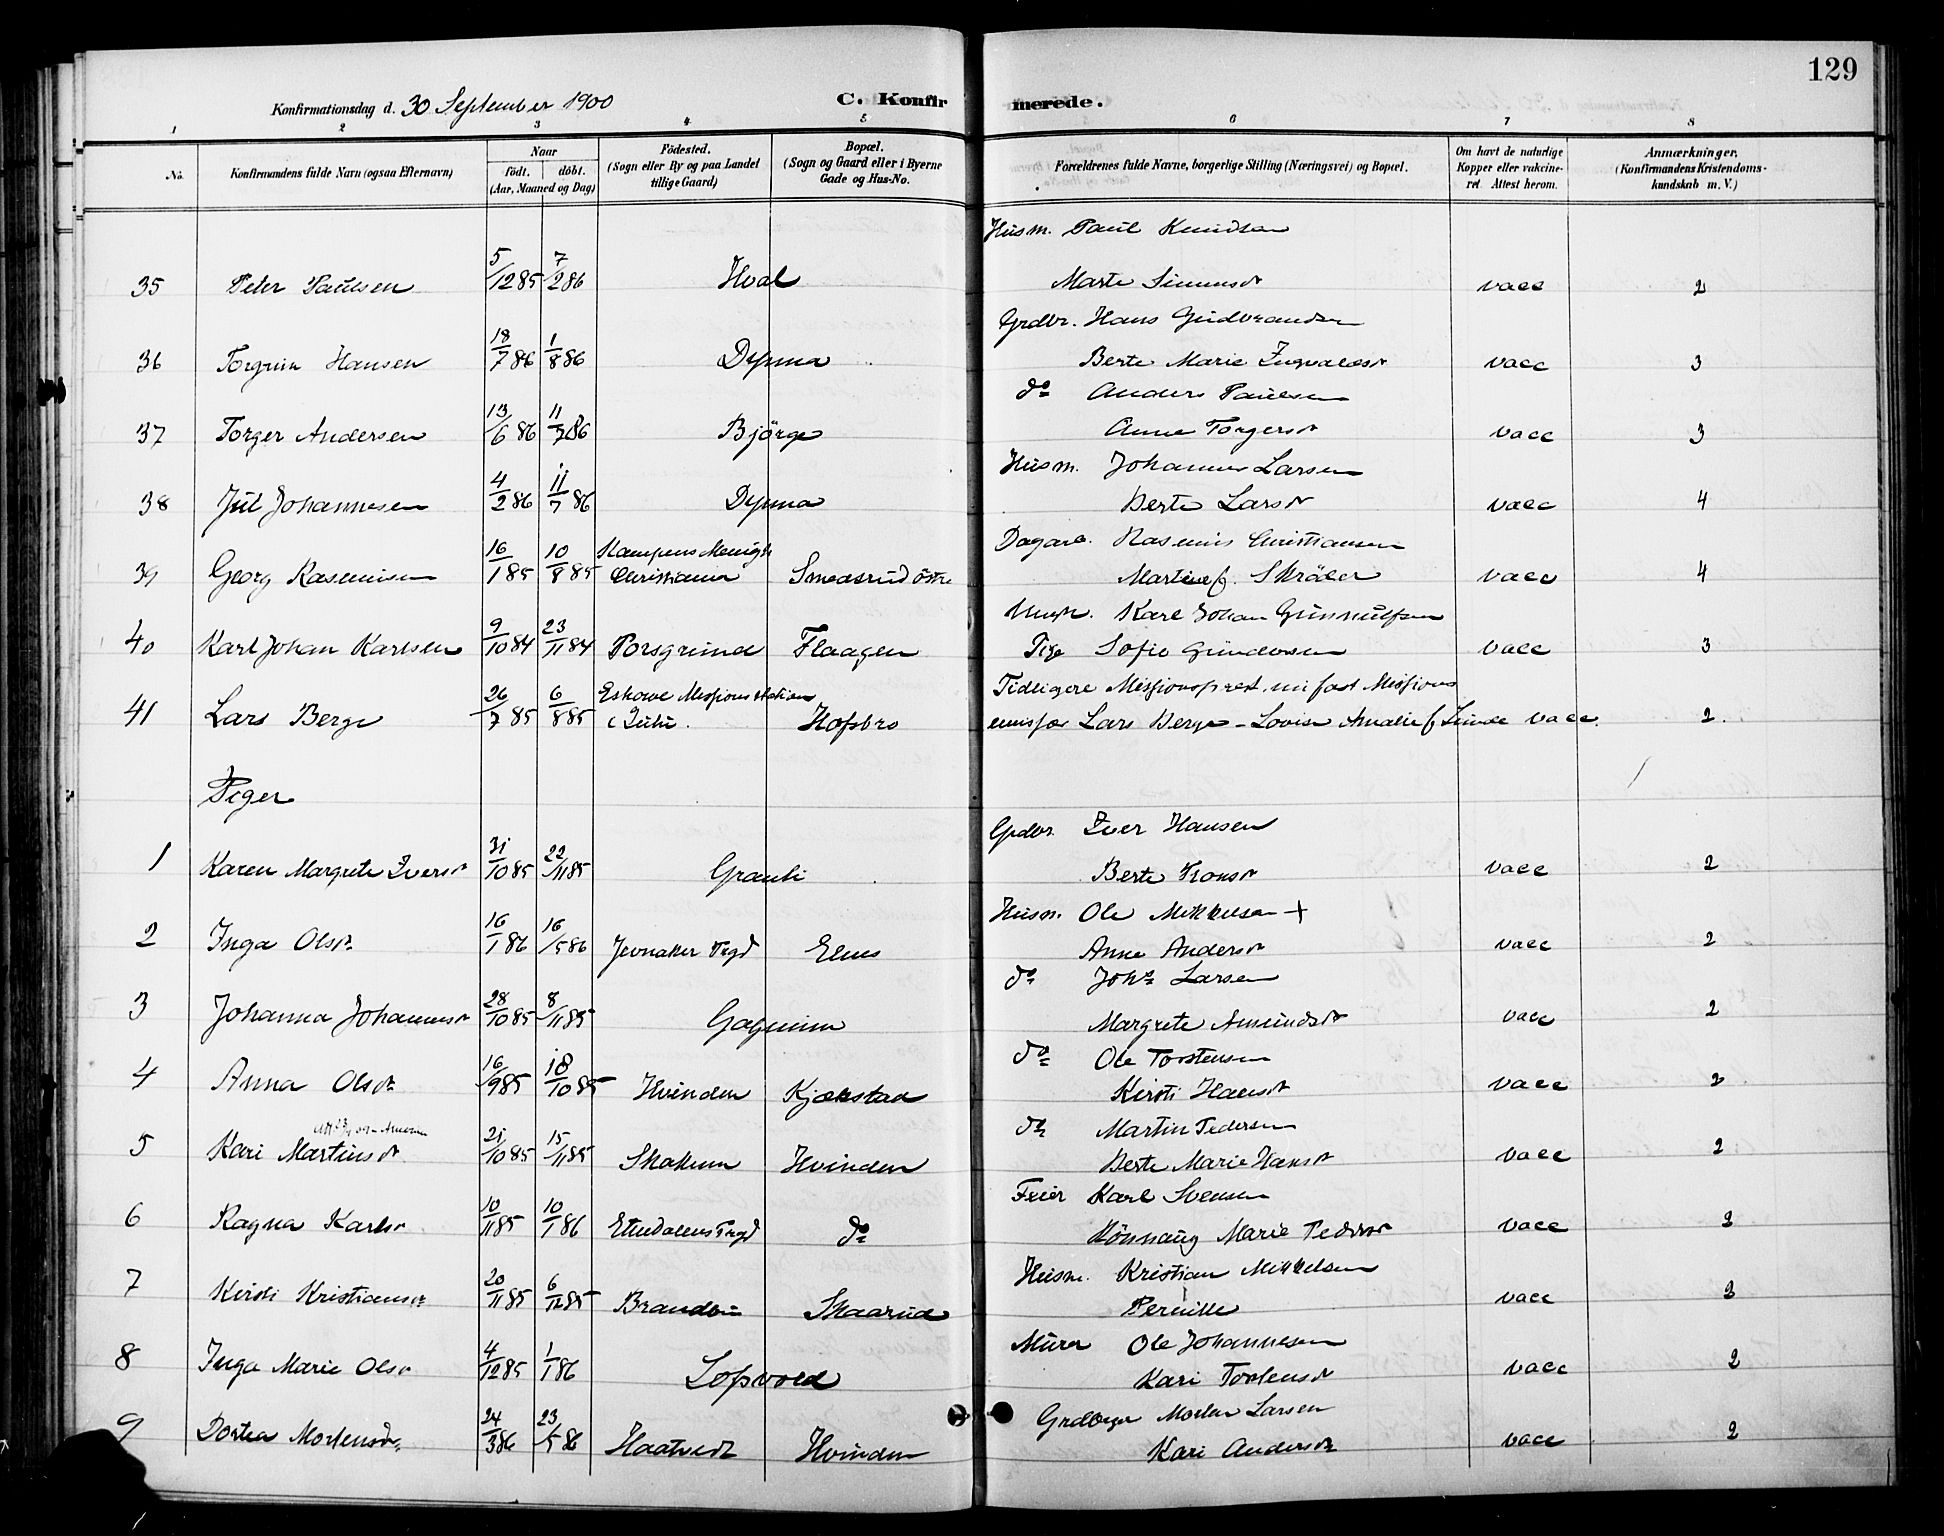 129
Konfirmationsdag d. 30 September 1900 C. Konfirmerede.
1 2 3 4 5 6 7 8
No. Konfirmandens fulde Navn (ogsaa Efternavn) Naar født. døbt. (Aar, Maaned og Dag) Fødested. (Sogn eller By og paa Landet tillige Gaard) Bopæl. (Sogn og Gaard eller i Byerne Gade og Hus-No. Forældrenes fulde Navne, borgerlige Stilling (Næringsvei) og Bopæl. Om havt de naturlige Kopper eller vakcineret. Attest herom. Anmærkninger. (Konfirmandens Kristendomskundskab m. V.)
Husm. Paul Knudsen
35 Peter Paulsen 5/12 85 7/2 86 Hval Marte Simensdr vacc 2
Grdbr. Hans Gudbrandsen
36 Torgrim Hansen 18/7 86 1/8 86 Dynna Berte Marie Ingvaldsdr vacc 3
do Anders Paulsen
37 Torger Andersen 13/6 86 11/7 86 Bjørge Anne Torgersdr vacc 3
Husm. Johannes Larsen
38 Jul Johannesen 4/2 86 11/7 86 Dynna Berte Larsdr vacc 4
Dagarb. Rasmus Christiansen
39 Georg Rasmusen 16/1 85 10/8 85 Kampens Menigh Christiania Smedsrud østre Martine f. Skräder vacc 4
Ungk. Karl Johan Gunnulfsen
40 Karl Johan Karlsen 9/10 84 23/11 84 Porsgrund Flaagen Pige Sofie Gundersen vacc 3
Tidligere Missionsprest, nu fast Missions
41 Lars Berge 26/7 85 6/8 85 Eshowe Missionsstation i Zulu. Hofsbro emissær Lars Berge - Lovise Amalie f. Lunde vacc. 2.
Piger
Grdbr. Iver Hansen
1 Karen Margrete Iversdr 31/10 85 22/11 85 Granli Berte Hansdr vacc 2
Husm. Ole Mikkelsen +
2 Inga Olsdr 16/1 86 16/5 86 Jevnaker Prgd Elnes Anne Andersdr vacc 2
do Johs Larsen
3 Johanna Johannesdr 28/10 85 8/11 85 Gagnum Margrete Amundsdr vacc 2
do Ole Torstensen
4 Anna Olsdr 16/9 85 18/10 85 Hvinden Kjækstad Kirsti Hansdr vacc 2
do Martin Pedersen
5 Kari Martinsdr 21/10 85 15/11 85 Skakum Hvinden Berte Marie Hansdr vacc 2
Feier Karl Svensen
6 Ragna Karlsdr 10/11 85 10/1 86 Etnedalens Prgd do Rønnaug Marie Pedersdr vacc 2
Husm. Kristian Mikkelsen
7 Kirsti Kristiansdr 20/11 85 6/12 85 Brandbu Skaarud Pernille vacc 2
Murer Ole Johannesen
8 Inga Marie Olsdr 4/12 85 1/1 86 Sopvold Kari Torstensdr vacc 2
Grdbruger Morten Larsen
9 Dortea Mortensdr. 24/3 86 23/5 86 Haatvedt Hvinden Kari Andersdr vacc 2